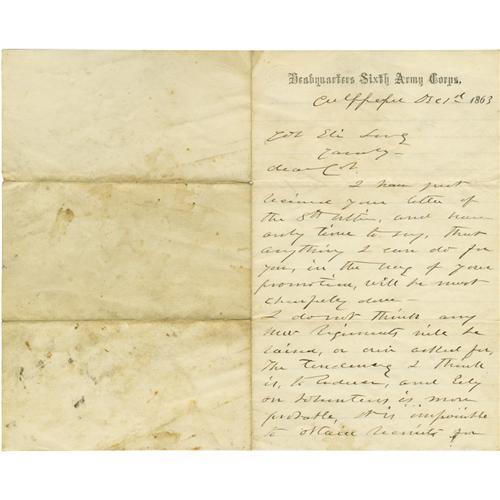 Headquarters Sixth Army Corps,
Culpeper Dec 1st 1863
Col Eli Long
dear Col.
I have just
received your letter of
the 5th Ultim, and have
only time to say, that
anything I can do for
you, in the way of your
promotion, will be most
cheerfully done —
I do not think any
new Regiments will be
raised, or even asked for,
The tendency I think
is, to reduce, and rely
on Volunteers is more
probable, it is impossible
to obtain recruits for